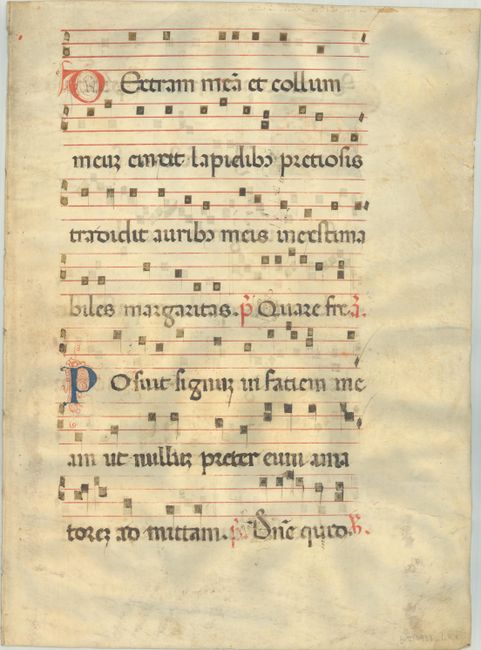 DExtram meā et collum
meuʒ cinxit lapidibꝫ pretiosis
tradidit auribꝫ meis inextima
biles margaritas. p̄ Quare fre. ā.
POsuit signuʒ in faciem me
am ut nulluʒ preter eum ama
toreʒ ad mittam. p̄ Dn̄e quid.